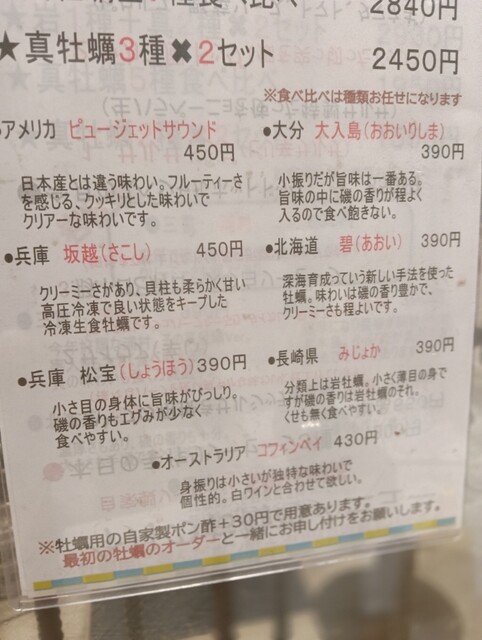 2840円
★真牡蠣3種✖2セット 2450円
※食べ比べは種類お任せになります
アメリカ ピュージェットサウンド
450円
日本産とは違う味わい。フルーティーさ
を感じる、クッキリとした味わいで
クリアーな味わいです。
●大分 大入島(おおいりしま)
390円
小振りだが旨味は一番ある。
旨味の中に磯の香りが程よく
入るので食べ飽きない。
●兵庫 坂越(さこし) 450円
クリーミーさがあり、貝柱も柔らかく甘い
高圧冷凍で良い状態をキープした
冷凍生食牡蠣です。
●北海道 碧(あおい) 390円
深海育成っていう新しい手法を使った
牡蠣。味わいは磯の香り豊かで、
クリーミーさも程よいです。
●兵庫 松宝(しょうほう)390円
小さ目の身体に旨味がびっしり。
磯の香りもエグみが少なく
食べやすい。
●長崎県 みじょか 390円
分類上は岩牡蠣。小さく薄目の身で
すが磯の香りは岩牡蠣のそれ。
くせも無く食べやすい。
●オーストラリア コフィンベイ 430円
身振りは小さいが独特な味わいで
個性的。白ワインと合わせて欲しい。
※牡蠣用の自家製ポン酢+30円で用意あります。
最初の牡蠣のオーダーと一緒にお申し付けをお願いします。